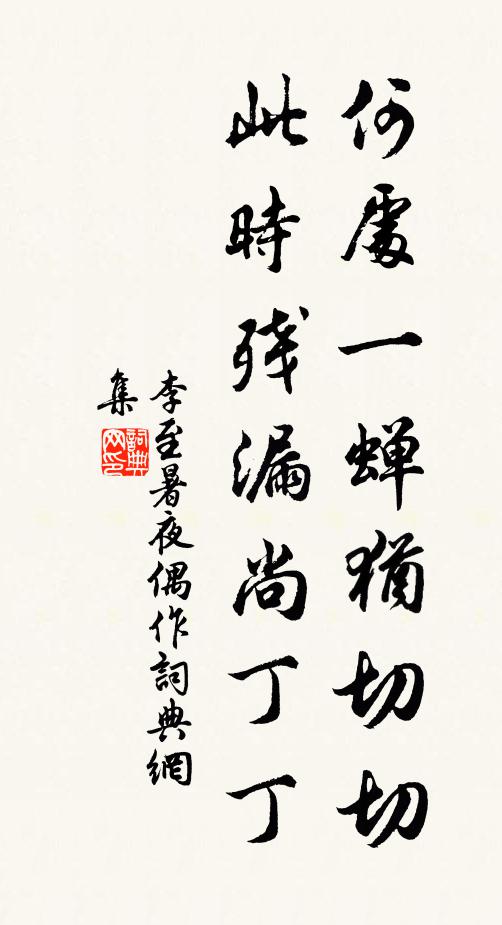 何處一蟬猶切切
此時残漏尚丁丁
李至暑夜偶作詞典網
集
詞典
网印